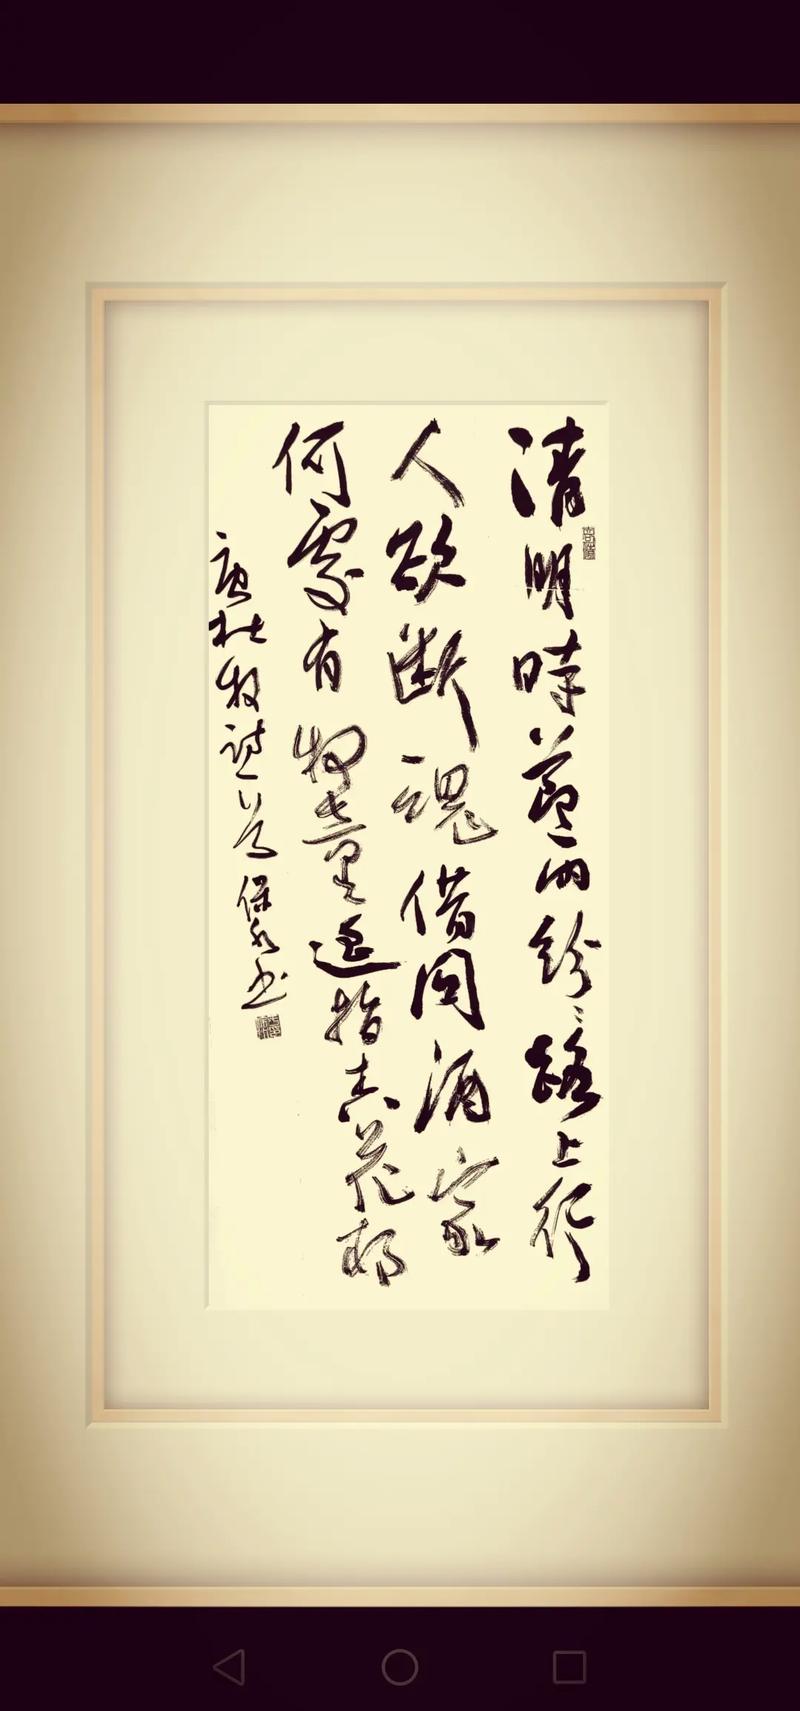 清明時節雨紛〻路上行
人欲斷魂借問酒家
何處有牧童遙指杏花村
唐杜牧詩一首保书